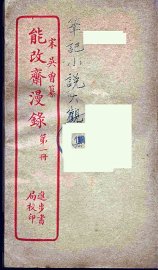 筆記小說大觀
宋 吳曾纂
能改齋漫錄 第一冊
進步書
局校印